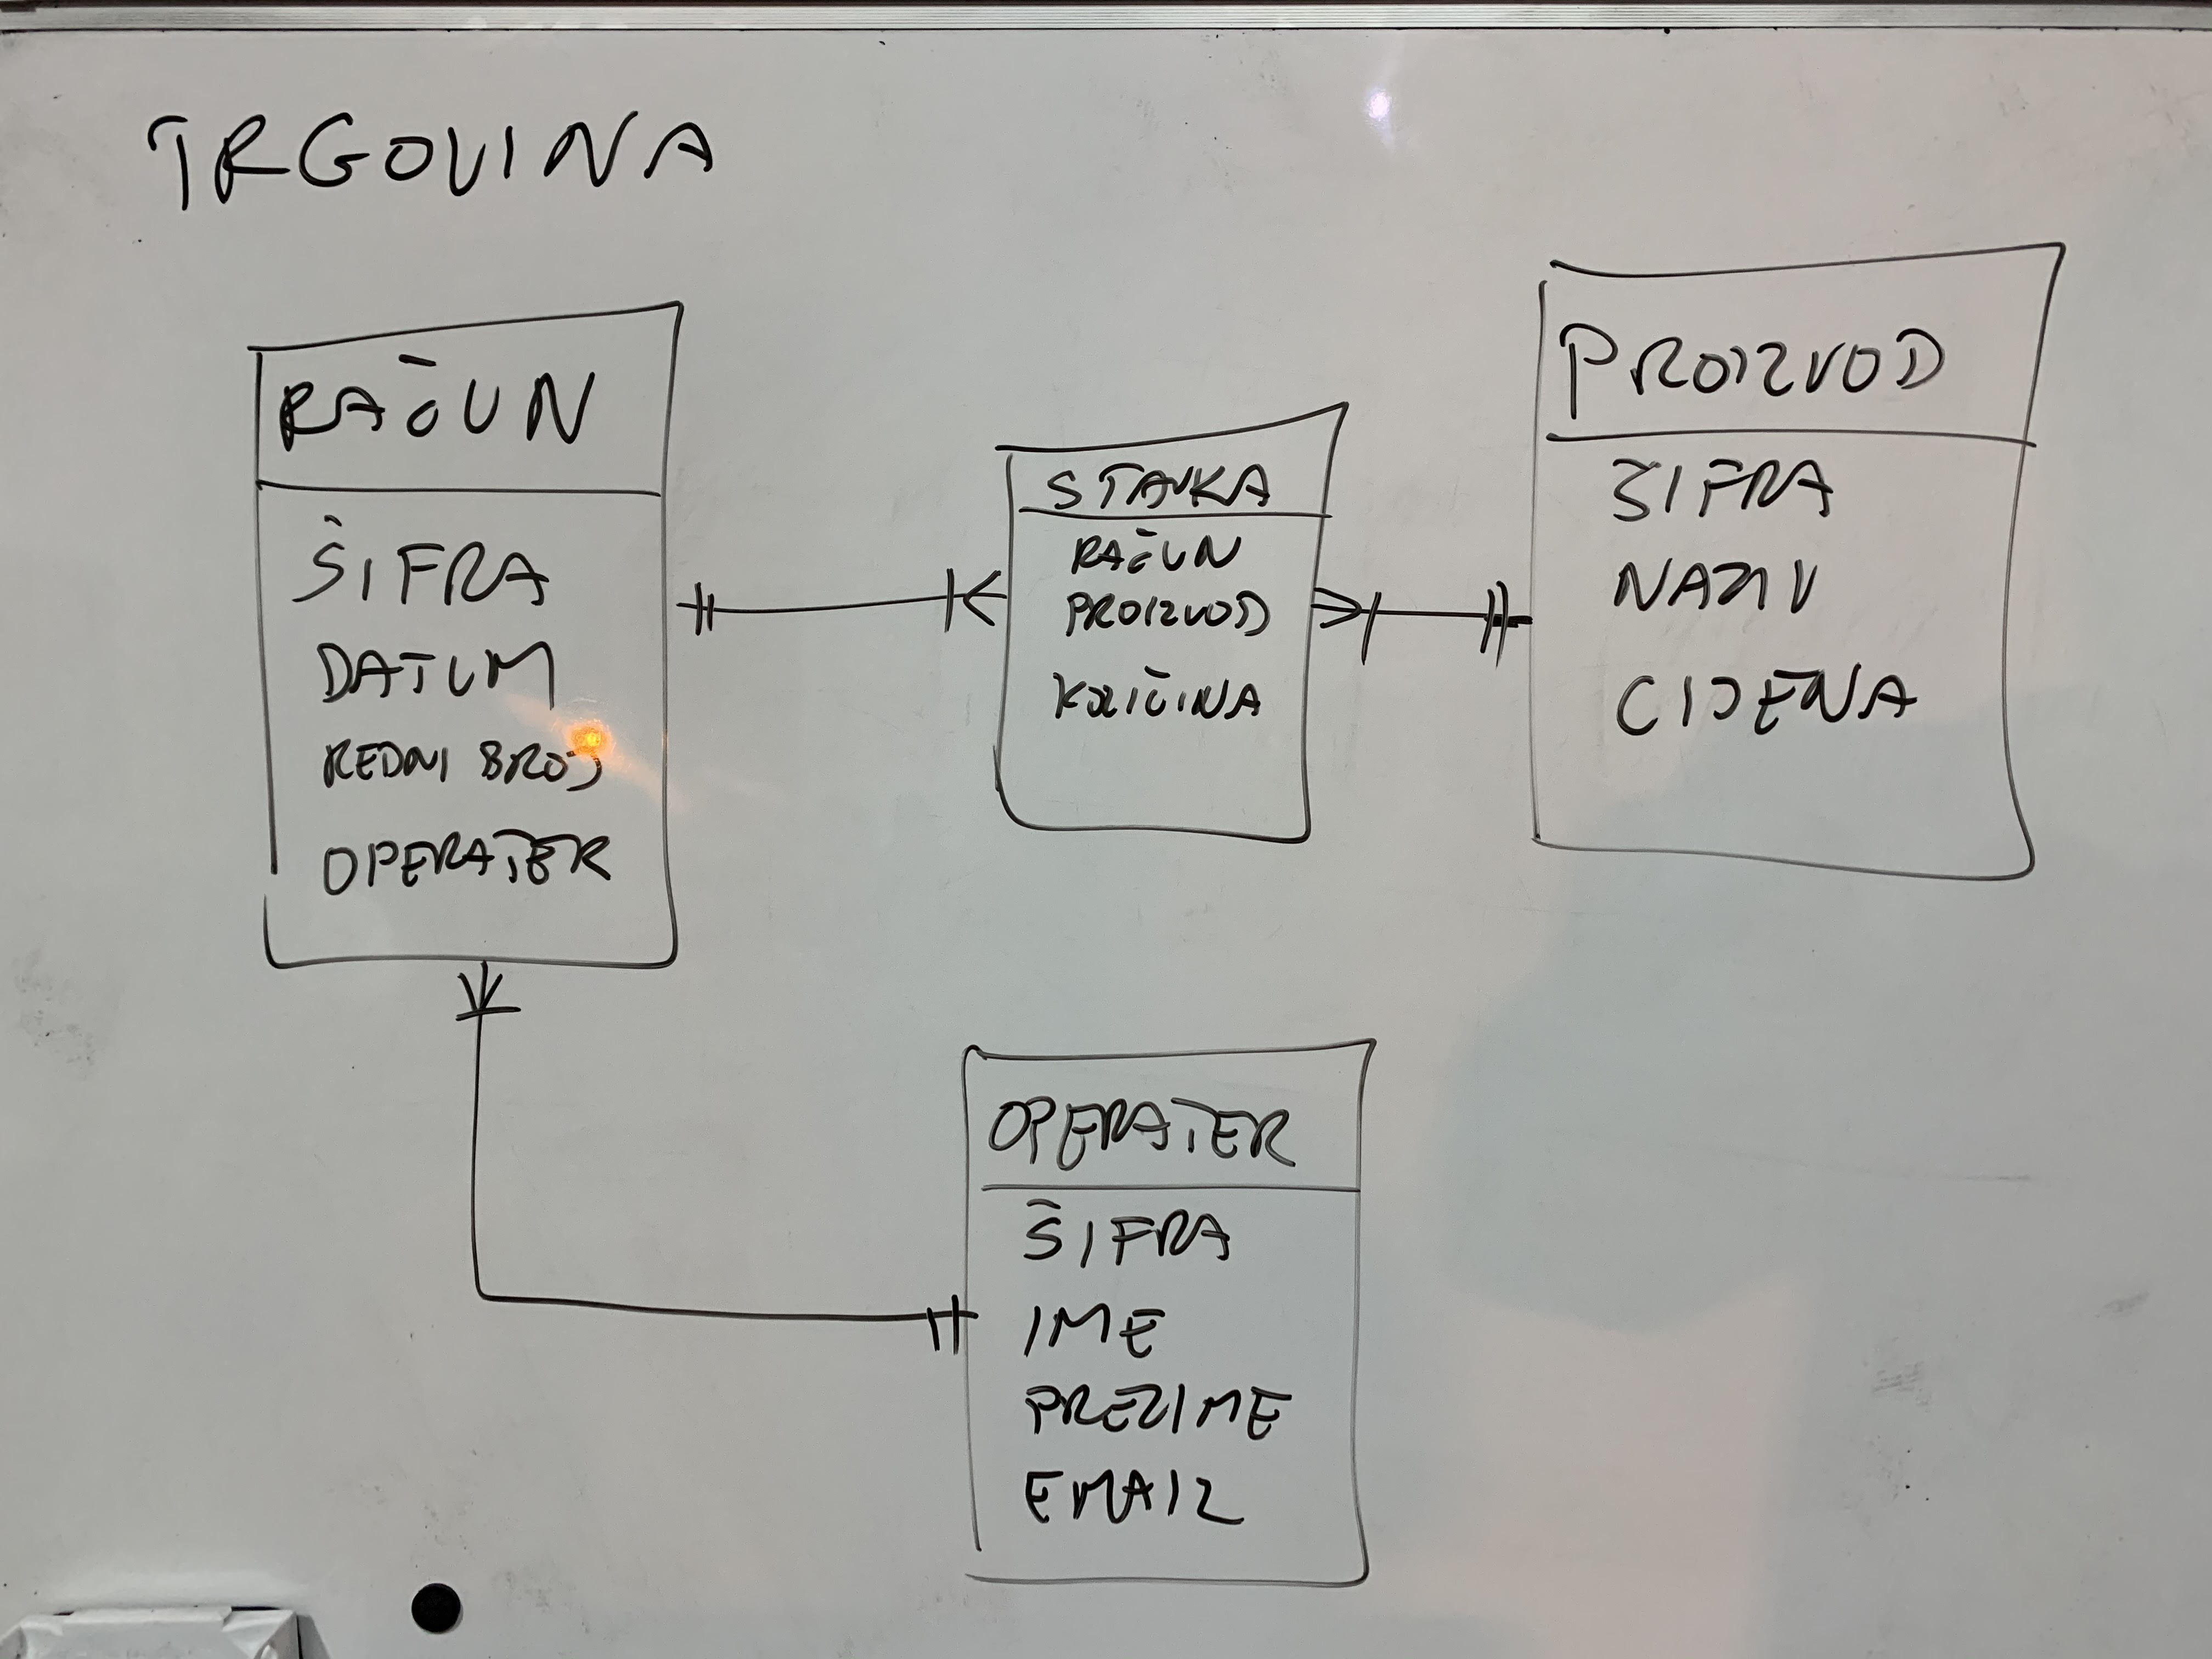 TRGOVINA
RAČUN
ŠIFRA
DATUM
REDNI BROJ
OPERATER
STAVKA
RAČUN
PROIZVOD
KOLIČINA
PROIZVOD
ŠIFRA
NAZIV
CIJENA
OPERATER
ŠIFRA
IME
PREZIME
EMAIL